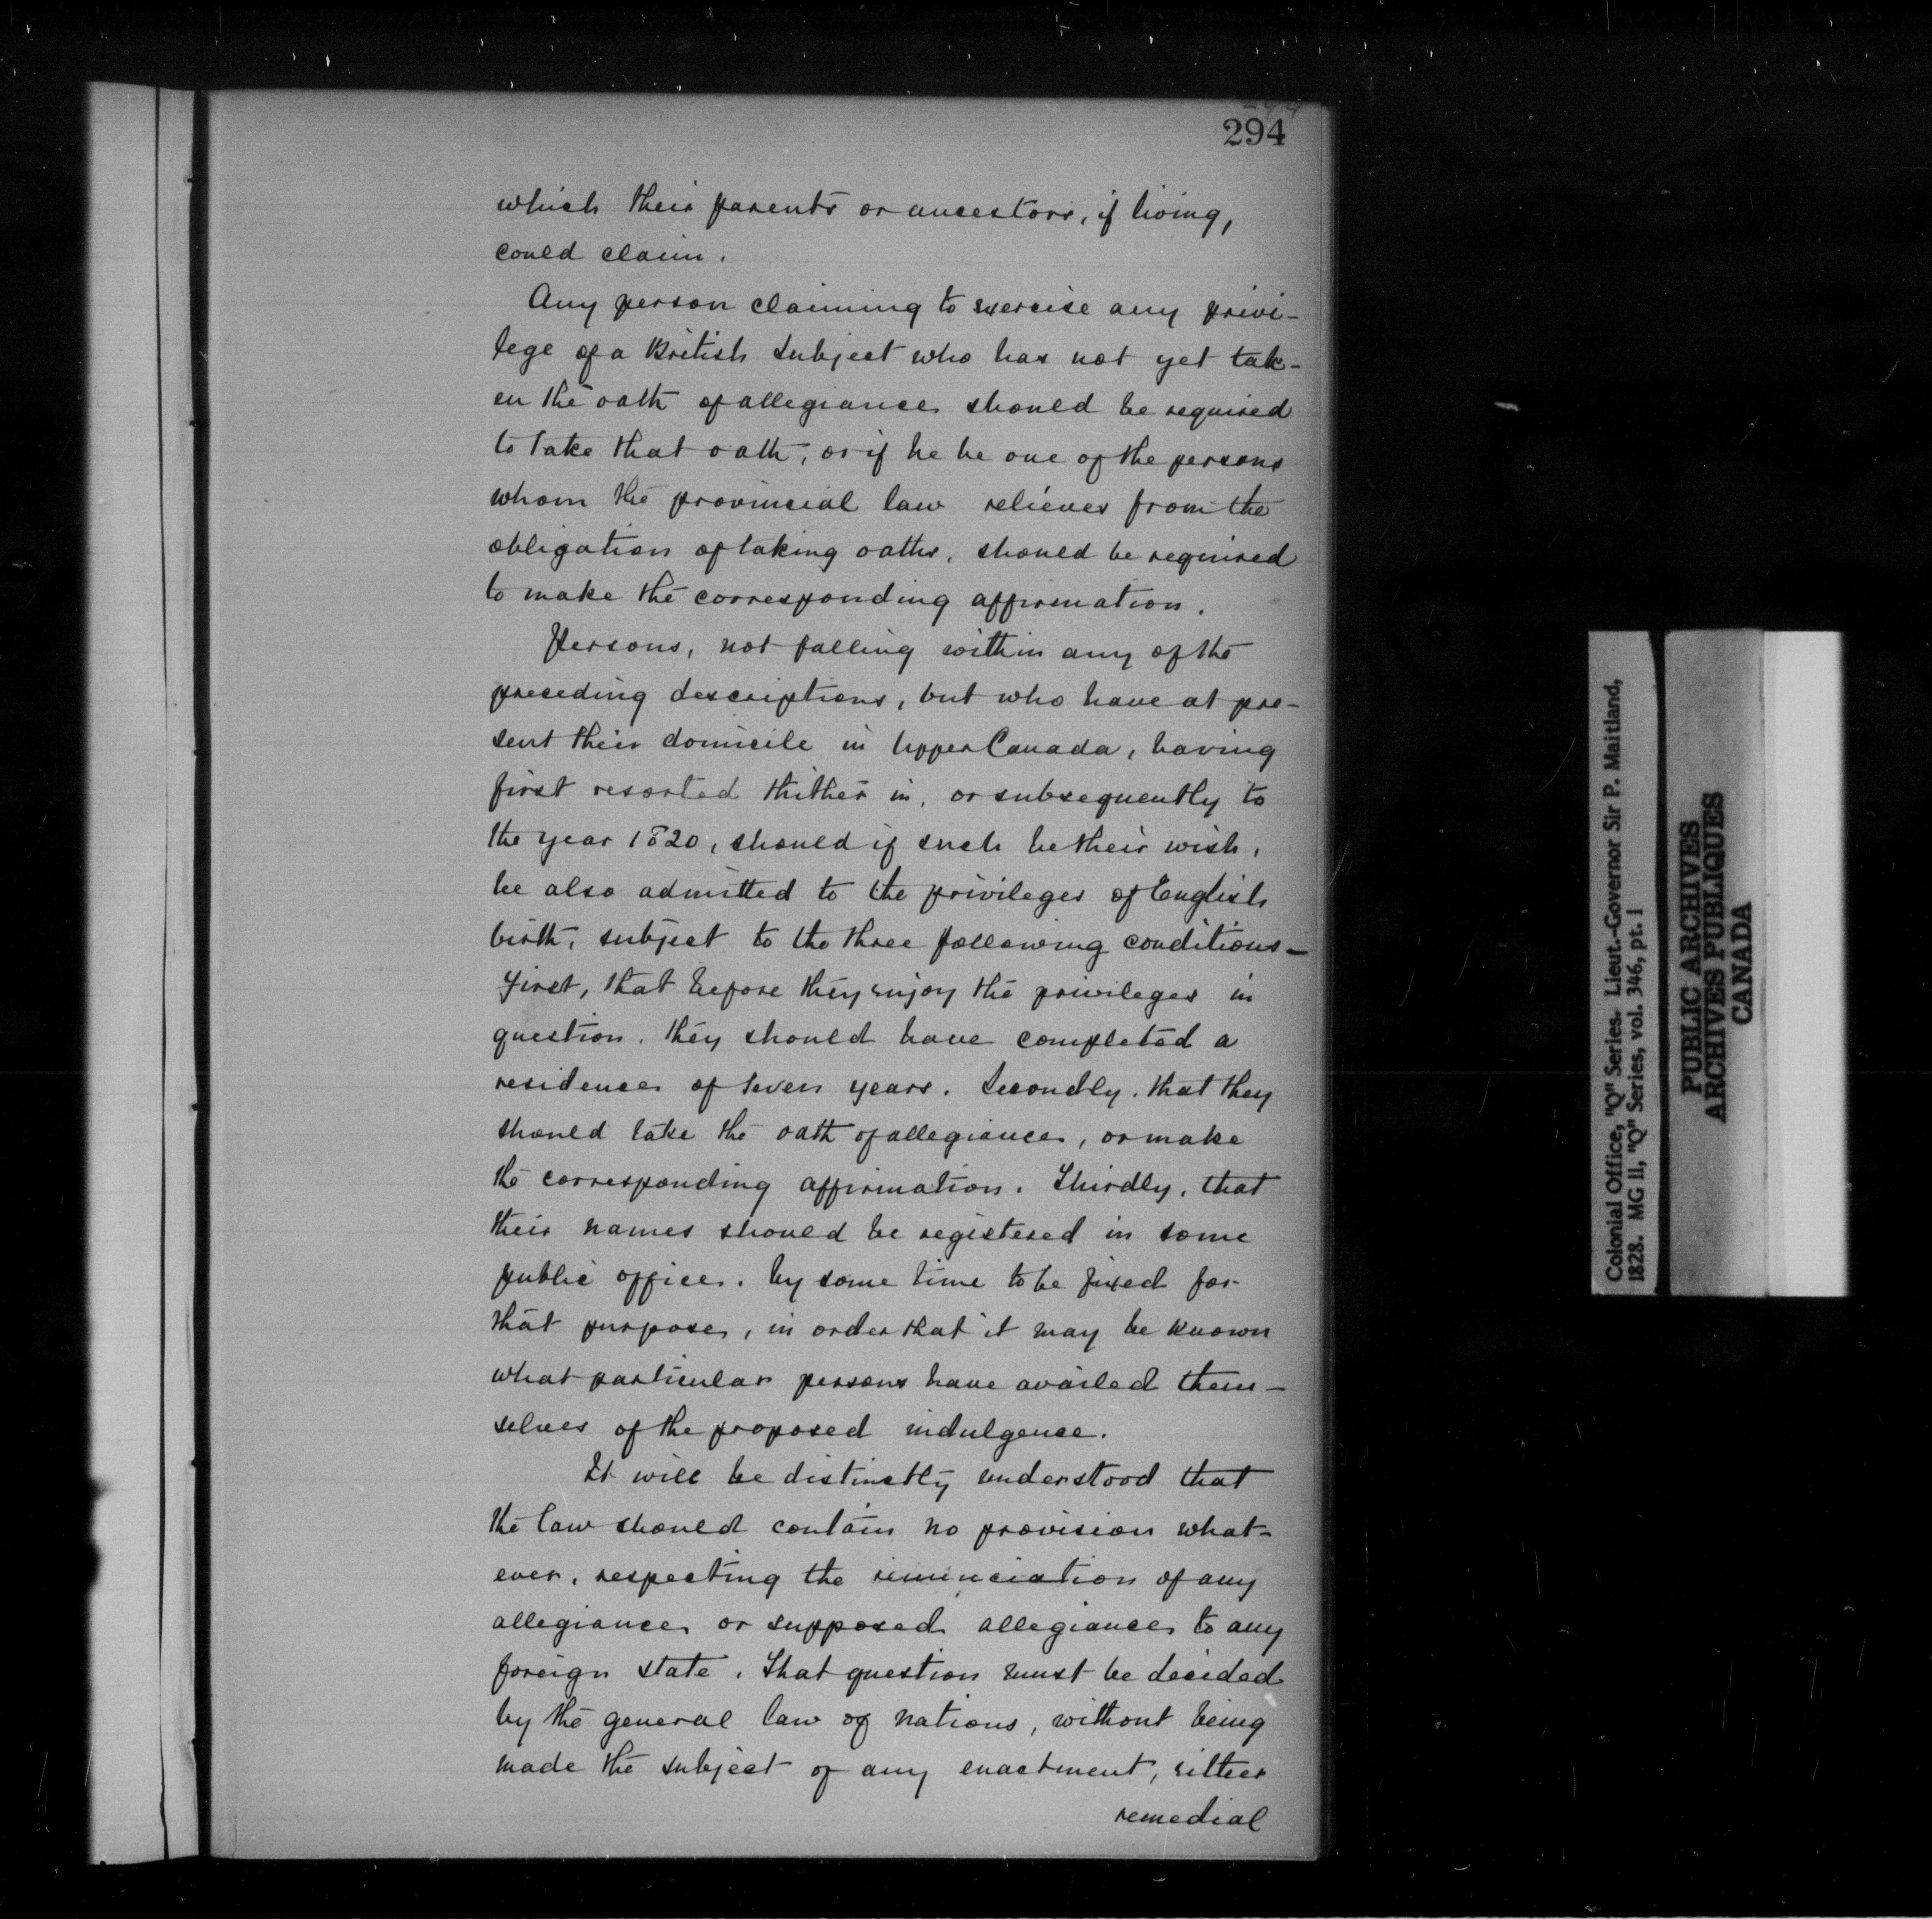 294
which their parents or ancestors, if living,
could claim.
Any person claiming to exercise any privi-
lege of a British subject who has not yet tak-
en the oath of allegiance should be required
to take that oath, or if he be one of the persons
whom the provincial law relieves from the
obligation of taking oaths, should be required
to make the corresponding affirmation.
Persons, not falling within any of the
preceding descriptions, but who have at pre-
sent their domicile in Upper Canada, having
first resorted thither in, or subsequently to
the year 1820, should if such be their wish,
be also admitted to the privileges of English
birth, subject to the three following conditions-
First, that before they enjoy the privileges in
question, they should have completed a
residence of seven years. Secondly, that they
should take the oath of allegiance, or make
the corresponding affirmation. Thirdly, that
their names should be registered in some
public office, by some time to be fixed for
that purpose, in order that it may be known
what particular persons have availed them-
selves of the proposed indulgence.
It will be distinctly understood that
the law should contain no provision what-
ever, respecting the renunciation of any
allegiance or supposed allegiance to any
foreign state. That question must be decided
by the general law of nations, without being
made the subject of any enactment, either
remedial
Colonial Office, "Q" Series. Lieut.-Governor Sir P. Maitland,
1828. MG 11, "Q" Series, vol. 346, pt. 1
PUBLIC ARCHIVES
ARCHIVES PUBLIQUES
CANADA